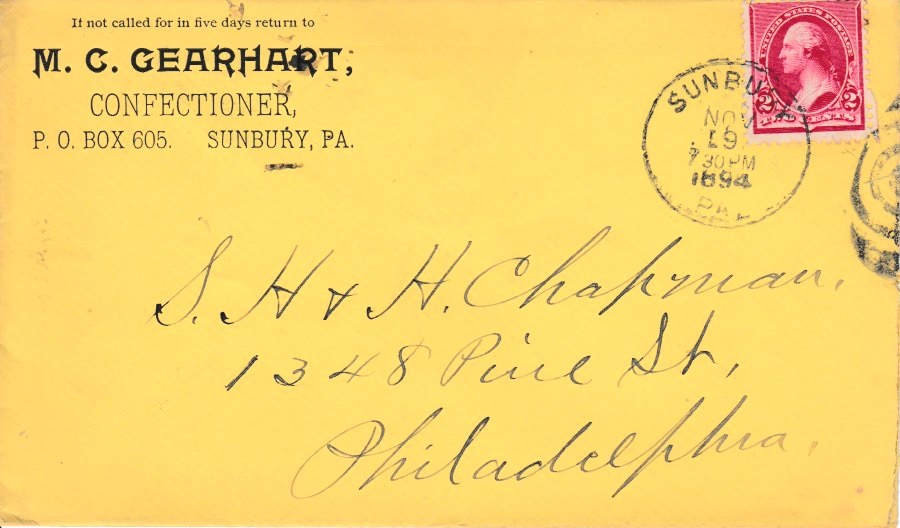 If not called for in five days return to
M. C. GEARHART,
CONFECTIONER,
P. O. BOX 605. SUNBURY, PA.
UNITED STATES POSTAGE
2 2
SUNBURY
NOV
19
7 30 PM
1894
PA.
S. H & H. Chapman,
1348 Pine St,
Philadelphia,